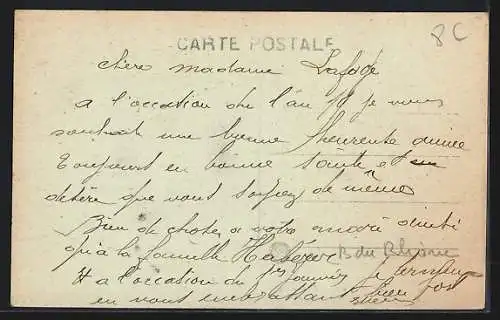 8C
CARTE POSTALE
chère madame Lafage
a l'occation du l'an 19 je vous
souhait une bonne heureuse année
Toujours en bonne santé e
désire que vous soyez de même
Bien de choses a votre mari ainsi
qu'à la famille
B du Rhône
et a l'occation du 1er janvier je
en vous embrassant bien